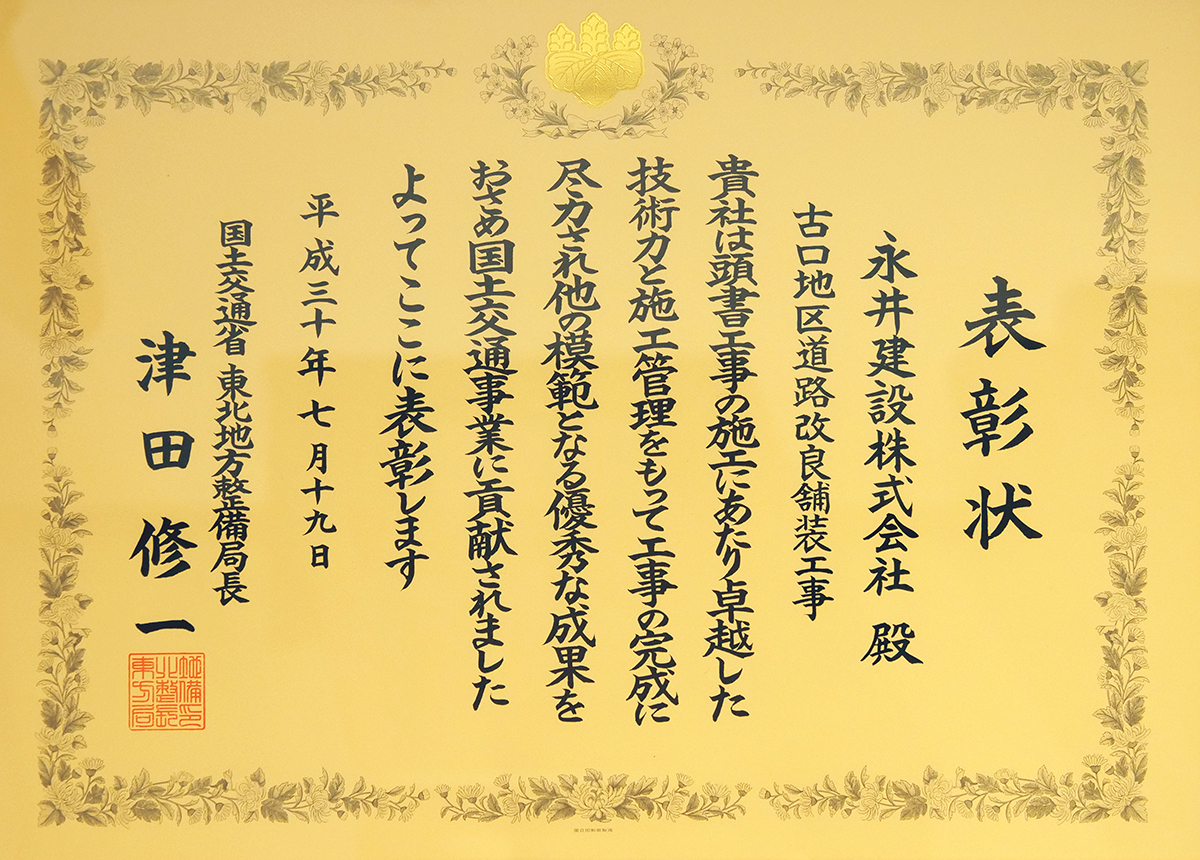 表彰状
永井建設株式会社 殿
古口地区道路改良舗装工事
貴社は頭書工事の施工にあたり卓越した
技術力と施工管理をもって工事の完成に
尽力され他の模範となる優秀な成果を
おさめ国土交通事業に貢献されました
よってここに表彰します
平成三十年七月十九日
国土交通省 東北地方整備局長
津田修一